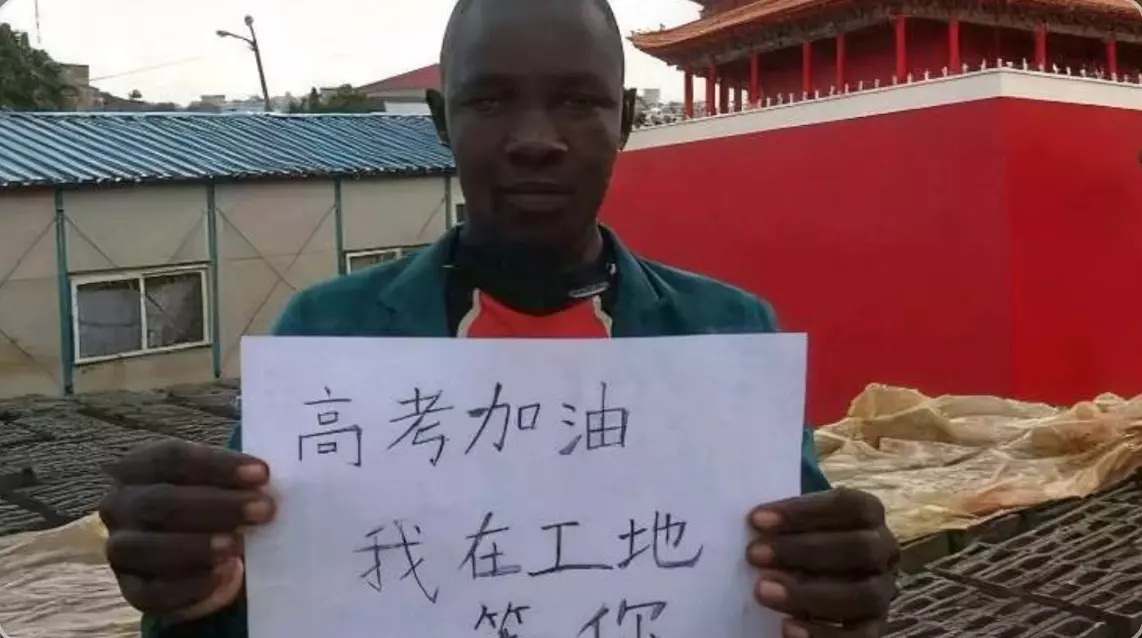 高考加油
我在工地
等你